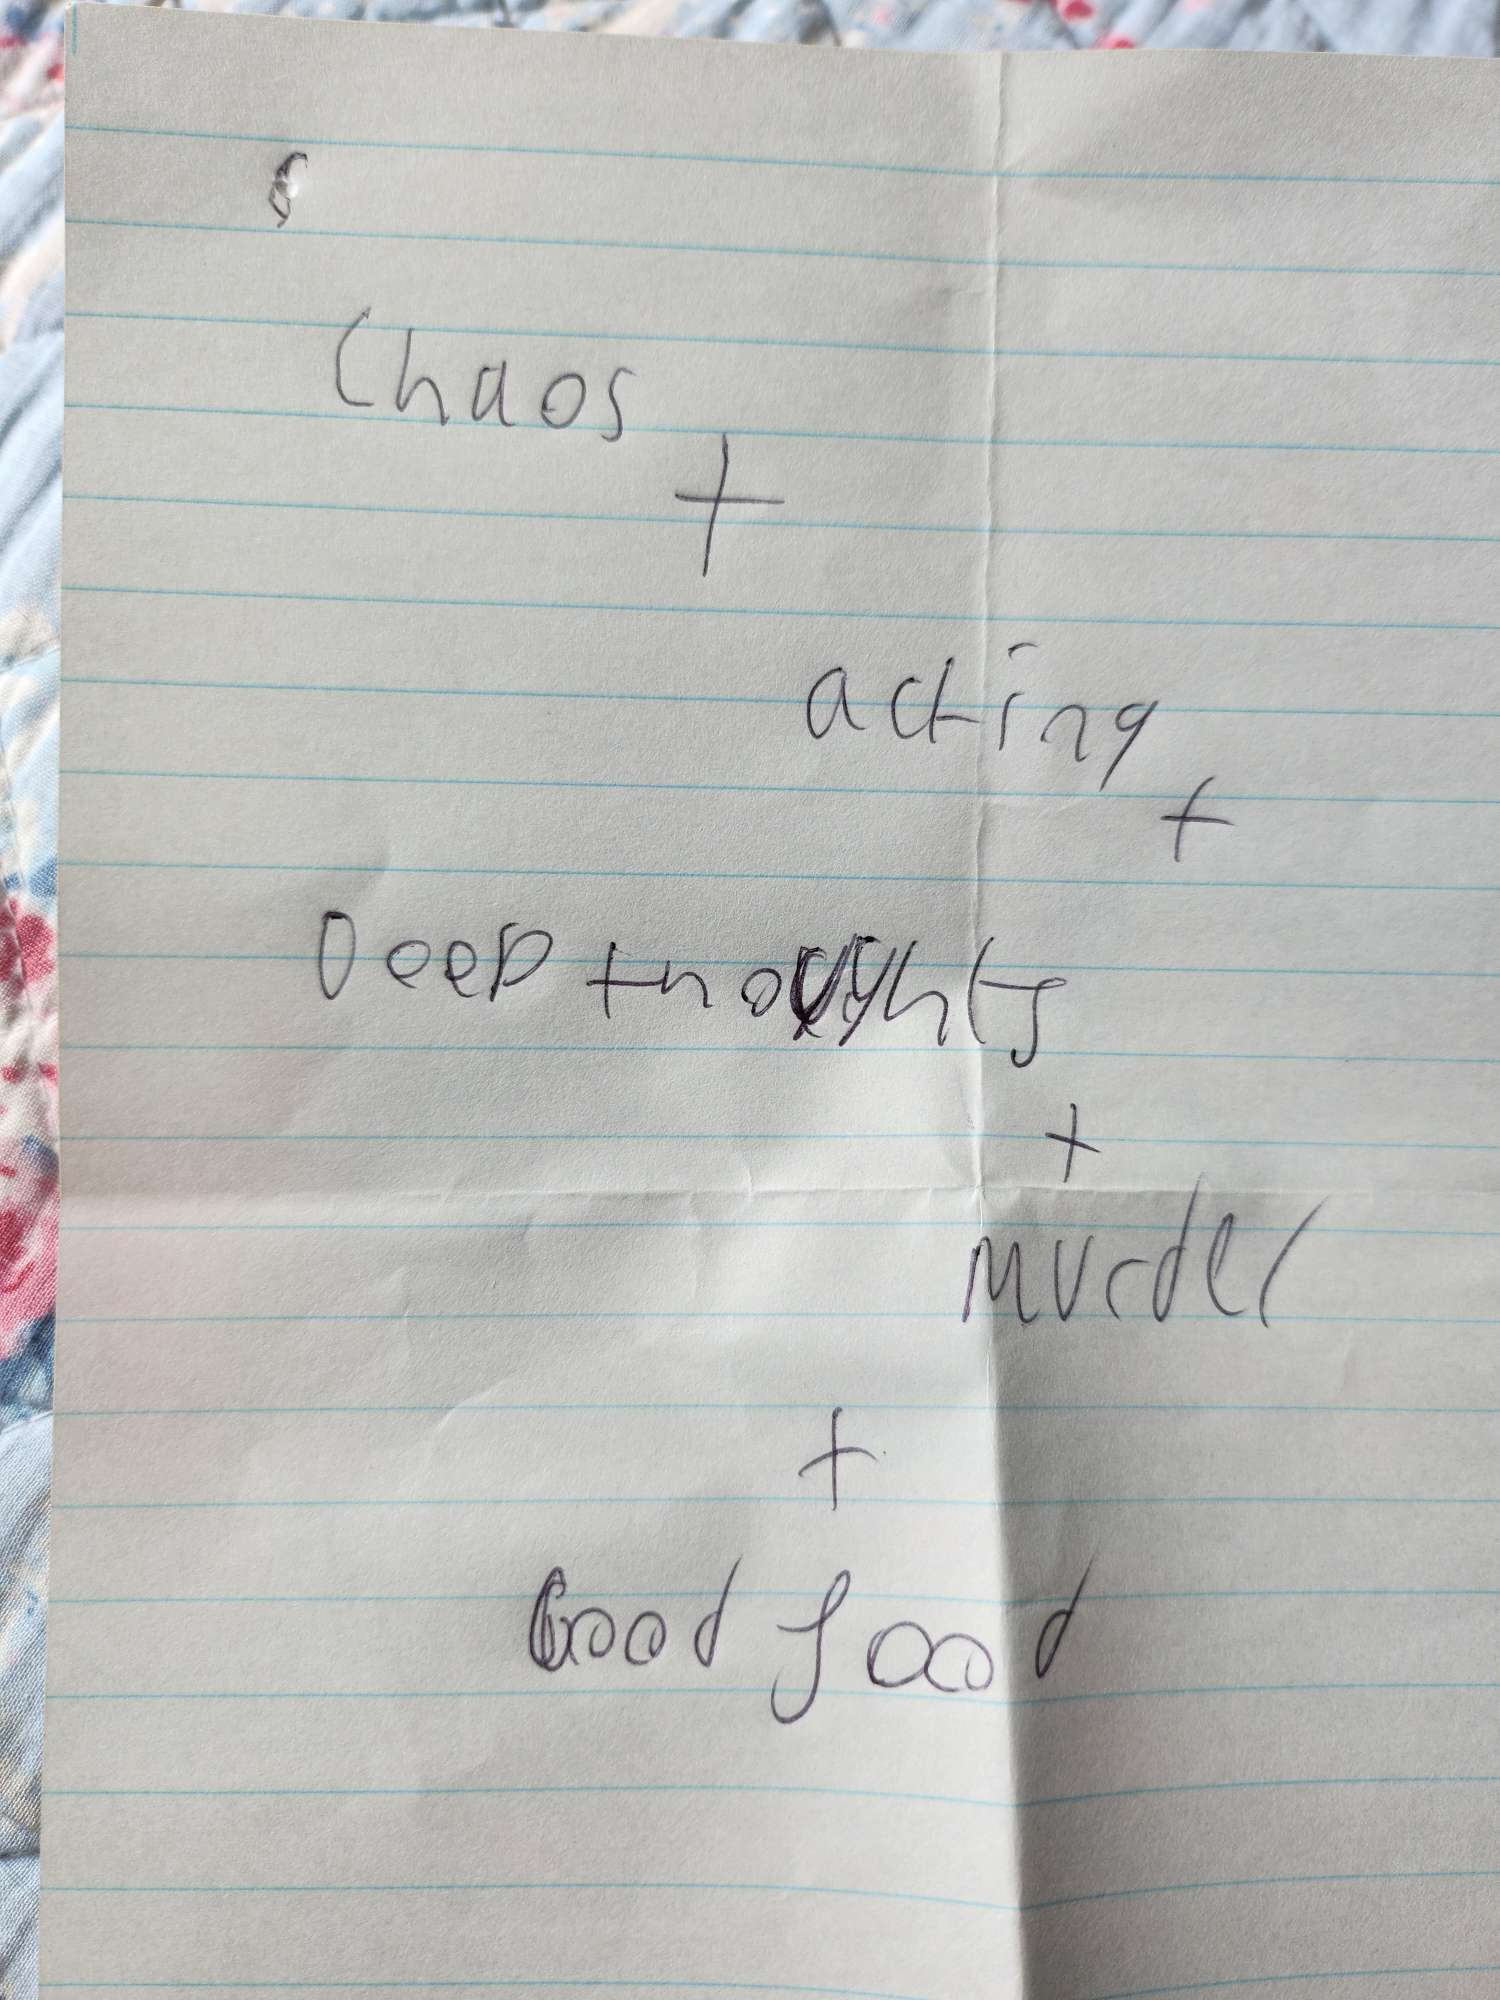 Chaos
+
acting
+
Deep thoughts
+
murder
+
Good food